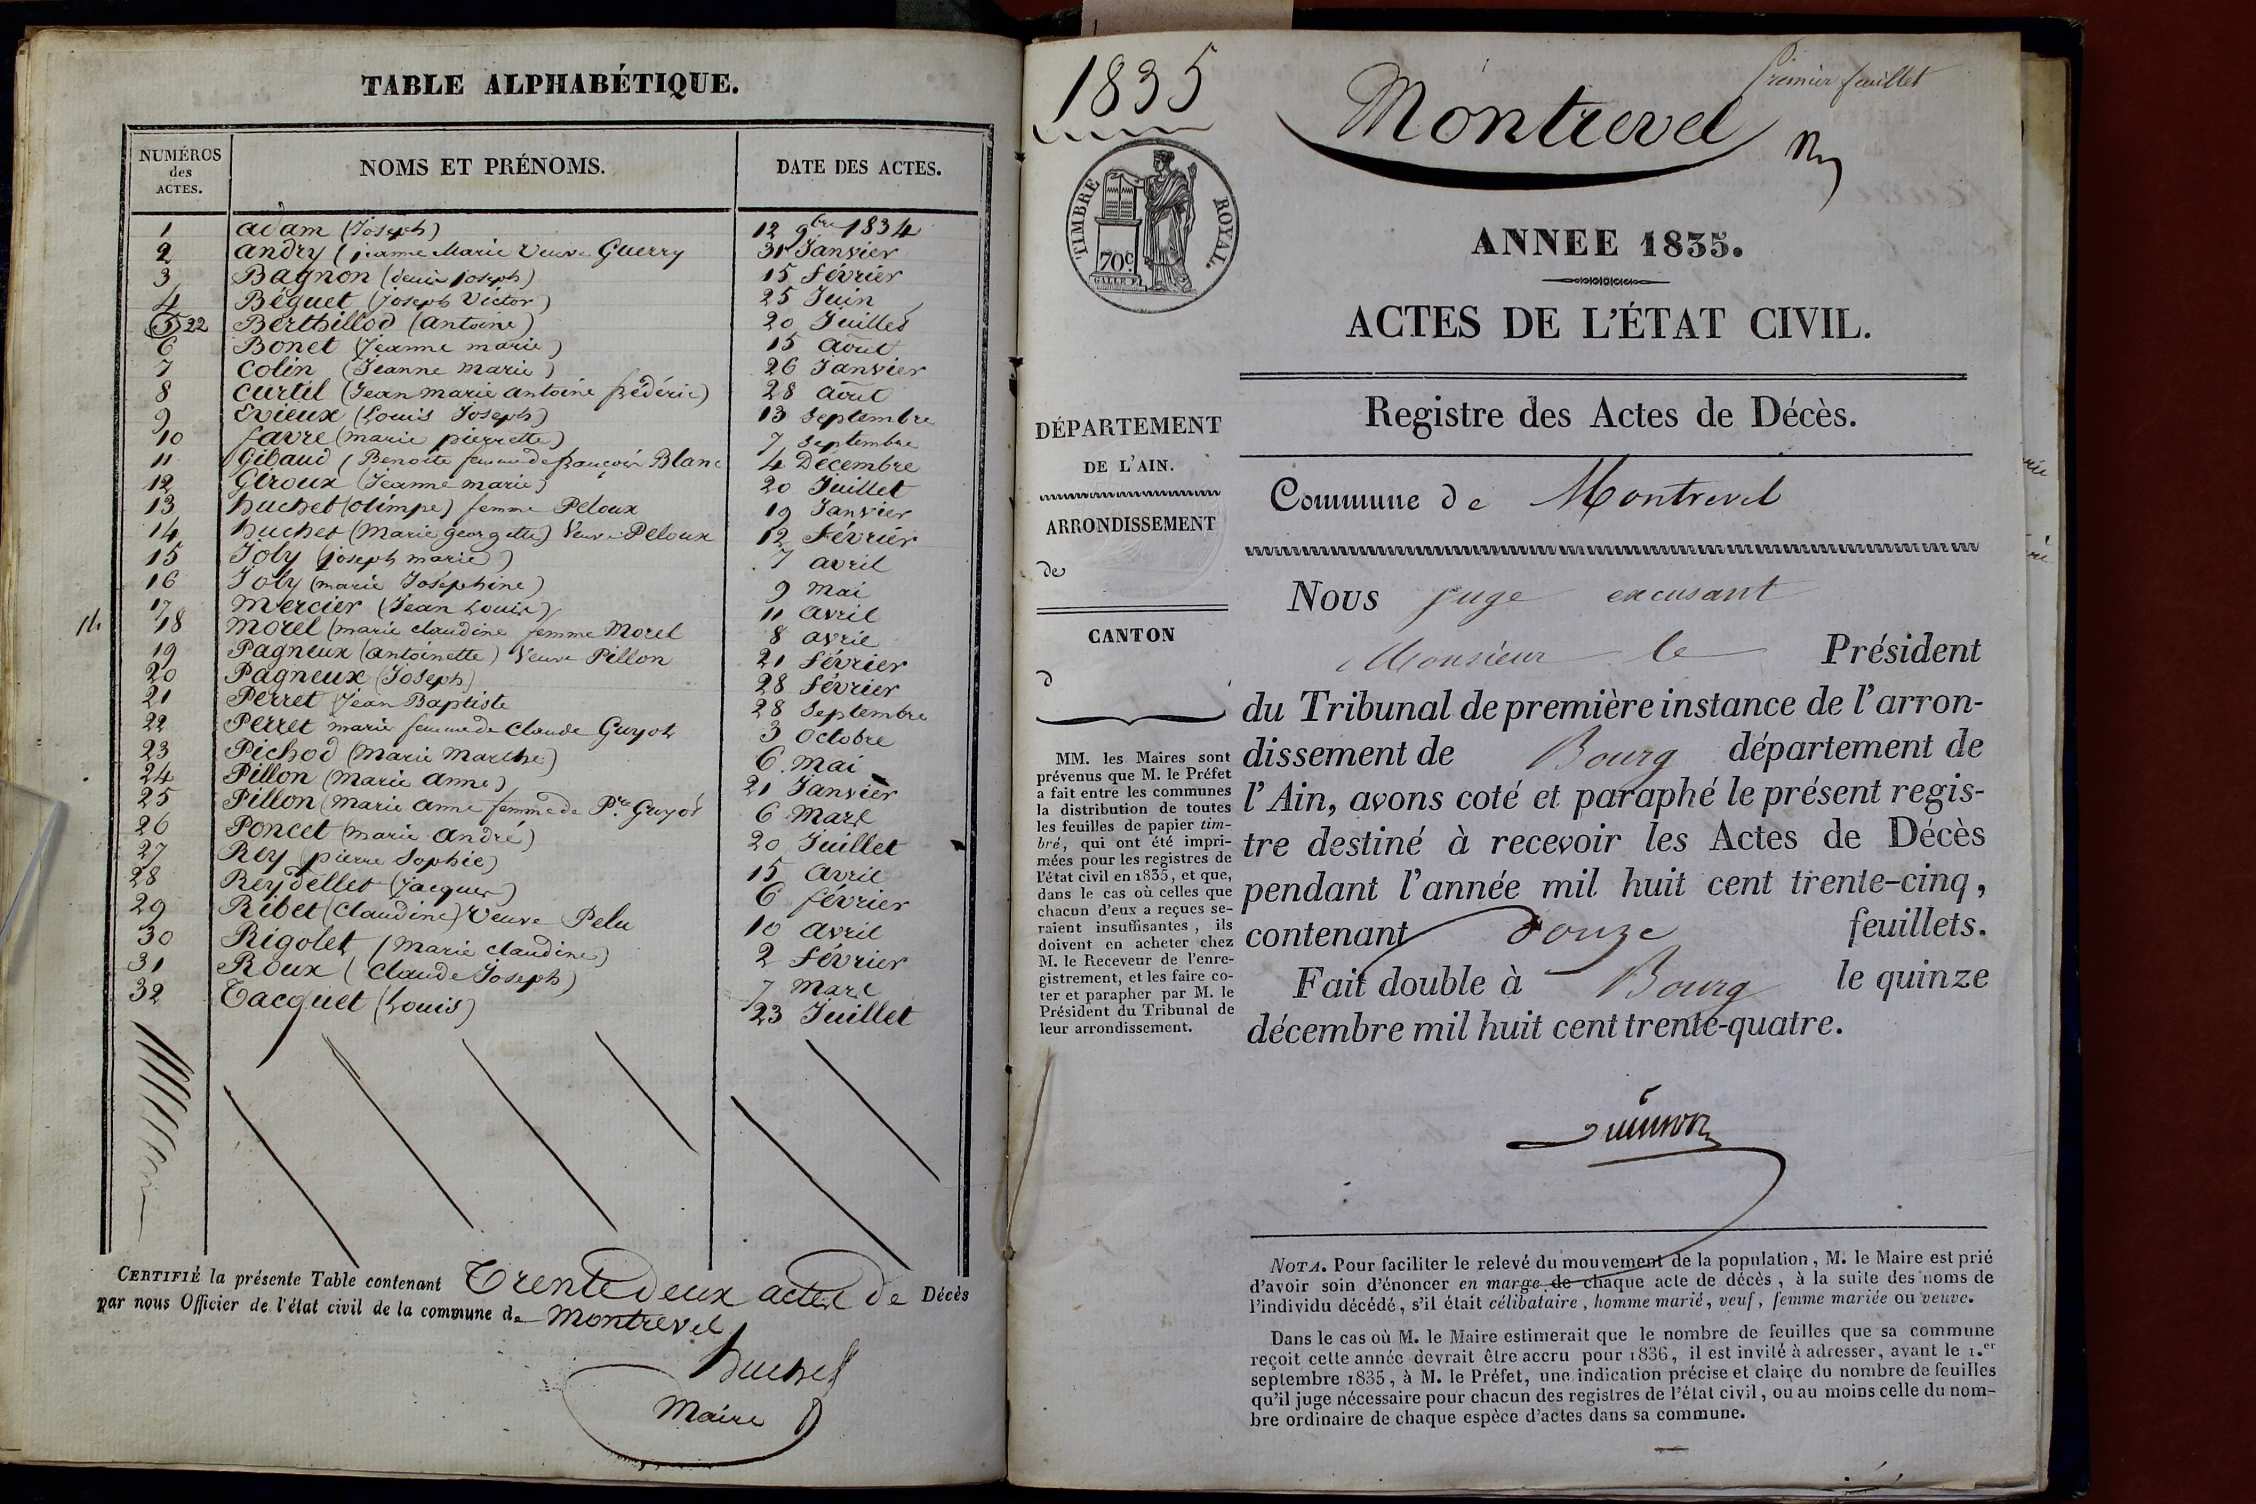 TABLE ALPHABÉTIQUE.
NUMÉROS des ACTES. NOMS ET PRÉNOMS. DATE DES ACTES.
1 adam (Joseph) 12 9bre 1834
2 andry (jeanne Marie Veuve Guerry 31 Janvier
3 Bagnon (denis joseph) 15 février
4 Béguet (joseph Victor) 25 Juin
5 22 Berthillod (antoine) 20 Juillet
6 Bonet (Jeanne marie) 15 août
7 Colin (Jeanne marie) 26 Janvier
8 Curtil (Jean marie antoine frédéric) 28 août
9 Evieux (Louis Joseph) 13 Septembre
10 favre (marie pierrette) 7 Septembre
11 Gibaud (Benoite femme de françois Blanc 4 Décembre
12 Giroux (Jeanne marie) 20 Juillet
13 huchet (olimpe) femme Peloux 19 Janvier
14 huchet (Marie georgette) Veuve Peloux 12 février
15 Joly (joseph marie) 7 avril
16 Joly (marie Joséphine) 9 mai
17 Mercier (Jean Louis) 11 avril
18 Morel (marie claudine femme Morel 8 avril
19 Pagneux (antoinette) Veuve Pillon 21 février
20 Pagneux (Joseph) 28 février
21 Perret (Jean Baptiste 28 Septembre
22 Perret marie femme de Claude Guyot 3 Octobre
23 Pichod (Marie Marthe) 6 mai
24 Pillon (Marie anne) 21 Janvier
25 Pillon (Marie anne femme de Pre Guyot 6 Mars
26 Poncet (marie andré) 20 Juillet
27 Rey (pierre Sophie) 15 avril
28 Reydellet (Jacques) 6 février
29 Ribet (Claudine) Veuve Pelu 10 avril
30 Rigolet (Marie claudine) 2 février
31 Roux (Claude Joseph) 7 Mars
32 Tacquet (Louis) 23 Juillet
CERTIFIÉ la présente Table contenant Trente deux actes de Décès
par nous Officier de l'état civil de la commune de Montrevel
huchet
Maire
1835
Montrevel
Premier feuillet
TIMBRE ROYAL.
70c.
ANNEE 1835.
ACTES DE L'ÉTAT CIVIL.
Registre des Actes de Décès.
DÉPARTEMENT
DE L'AIN.
ARRONDISSEMENT
de
CANTON
d
MM. les Maires sont
prévenus que M. le Préfet
a fait entre les communes
la distribution de toutes
les feuilles de papier tim-
bré, qui ont été impri-
mées pour les registres de
l'état civil en 1835, et que,
dans le cas où celles que
chacun d'eux a reçues se-
raient insuffisantes, ils
doivent en acheter chez
M. le Receveur de l'enre-
gistrement, et les faire co-
ter et parapher par M. le
Président du Tribunal de
leur arrondissement.
Commune de Montrevel
Nous juge excusant
Monsieur le Président
du Tribunal de première instance de l'arron-
dissement de Bourg département de
l'Ain, avons coté et paraphé le présent regis-
tre destiné à recevoir les Actes de Décès
pendant l'année mil huit cent trente-cinq,
contenant douze feuillets.
Fait double à Bourg le quinze
décembre mil huit cent trente-quatre.
NOTA. Pour faciliter le relevé du mouvement de la population, M. le Maire est prié
d'avoir soin d'énoncer en marge de chaque acte de décès, à la suite des noms de
l'individu décédé, s'il était célibataire, homme marié, veuf, femme mariée ou veuve.
Dans le cas où M. le Maire estimerait que le nombre de feuilles que sa commune
reçoit cette année devrait être accru pour 1836, il est invité à adresser, avant le 1.er
septembre 1835, à M. le Préfet, une indication précise et claire du nombre de feuilles
qu'il juge nécessaire pour chacun des registres de l'état civil, ou au moins celle du nom-
bre ordinaire de chaque espèce d'actes dans sa commune.